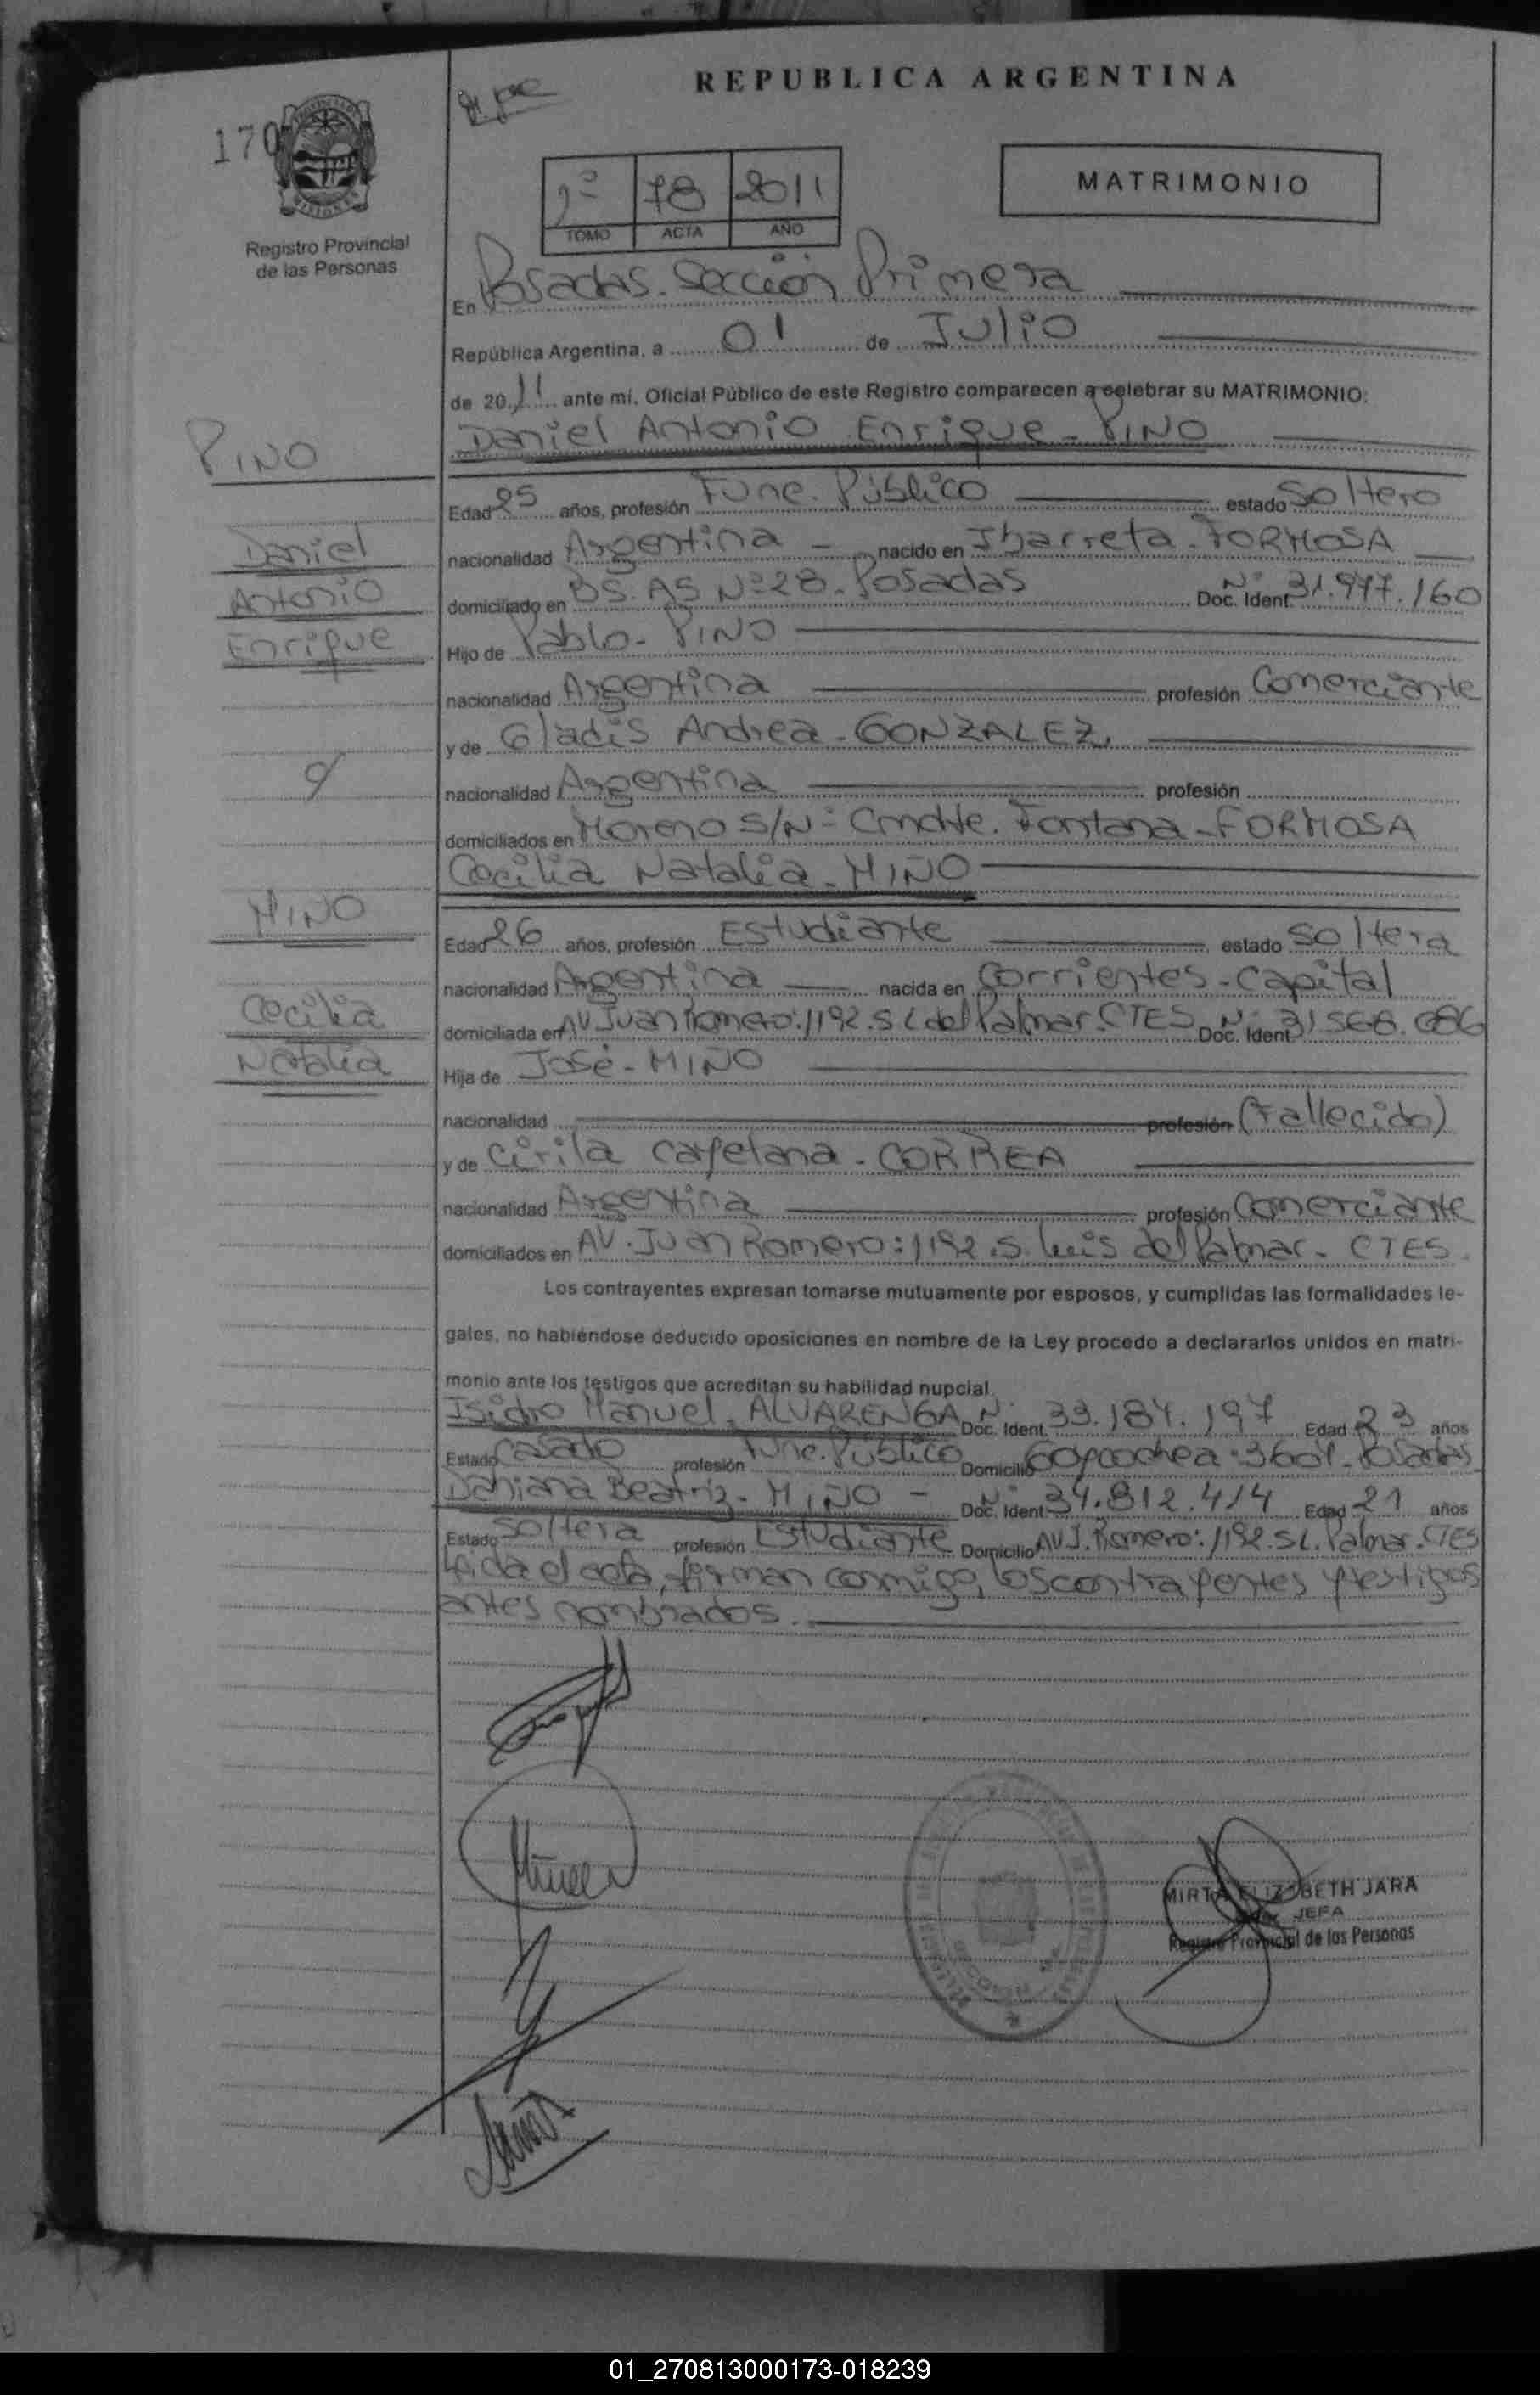 REPUBLICA ARGENTINA
170
Registro Provincial
de las Personas
2º 78 2011
TOMO ACTA AÑO
MATRIMONIO
En Posadas. Sección Primera
República Argentina, a 01 de Julio
de 20 11 ante mí, Oficial Público de este Registro comparecen a celebrar su MATRIMONIO:
PINO
Daniel Antonio Enrique - PINO
Edad 25 años, profesión Func. Público estado Soltero
Daniel
nacionalidad Argentina - nacido en Ibarreta - FORMOSA
Antonio
domiciliado en BS. AS Nº 28 - Posadas Doc. Ident. Nº 31.977.160
Enrique
Hijo de Pablo - PINO
nacionalidad Argentina profesión Comerciante
y de Gladis Andrea - GONZALEZ.
nacionalidad Argentina profesión
domiciliados en Moreno S/N - Cmdte. Fontana - FORMOSA
Cecilia Natalia - MIÑO
MIÑO
Edad 26 años, profesión Estudiante estado Soltera
nacionalidad Argentina nacida en Corrientes - Capital
Cecilia
domiciliada en AV Juan Romero: 1192. S L del Palmar. CTES Doc. Ident. Nº 31.568.086
Natalia
Hija de José - MIÑO
nacionalidad profesión (Fallecido)
y de Cirila Cayetana - CORREA
nacionalidad Argentina profesión Comerciante
domiciliados en AV. Juan Romero: 1192. S. Luis del Palmar - CTES.
Los contrayentes expresan tomarse mutuamente por esposos, y cumplidas las formalidades le-
gales, no habiéndose deducido oposiciones en nombre de la Ley procedo a declararlos unidos en matri-
monio ante los testigos que acreditan su habilidad nupcial.
Isidro Manuel - ALVARENGA Doc. Ident. Nº 33.184.197 Edad 23 años
Estado Casado profesión Func. Público Domicilio Goycochea: 3601 - Posadas
Dahiana Beatriz - MIÑO - Doc. Ident. Nº 34.812.414 Edad 21 años
Estado Soltera profesión Estudiante Domicilio AV J. Romero: 1192. S L. Palmar - CTES
Leida el acta, firman conmigo, los contrayentes y testigos
antes nombrados.
MIRTA ELIZABETH JARA
JEFA
Registro Provincial de las Personas
01_270813000173-018239